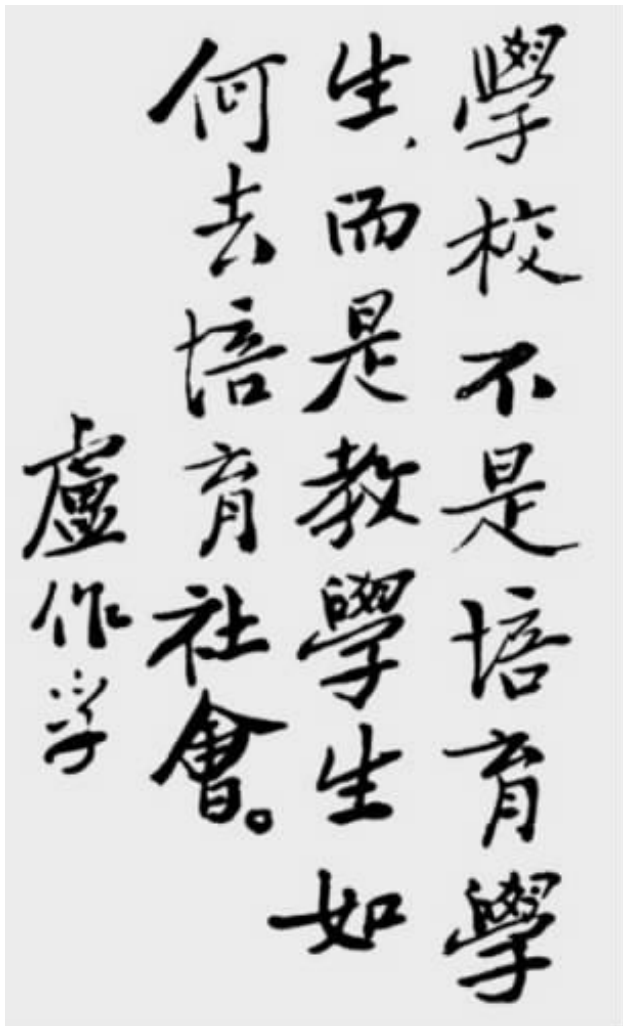 學校不是培育學
生、而是教學生如
何去培育社會。
盧作孚